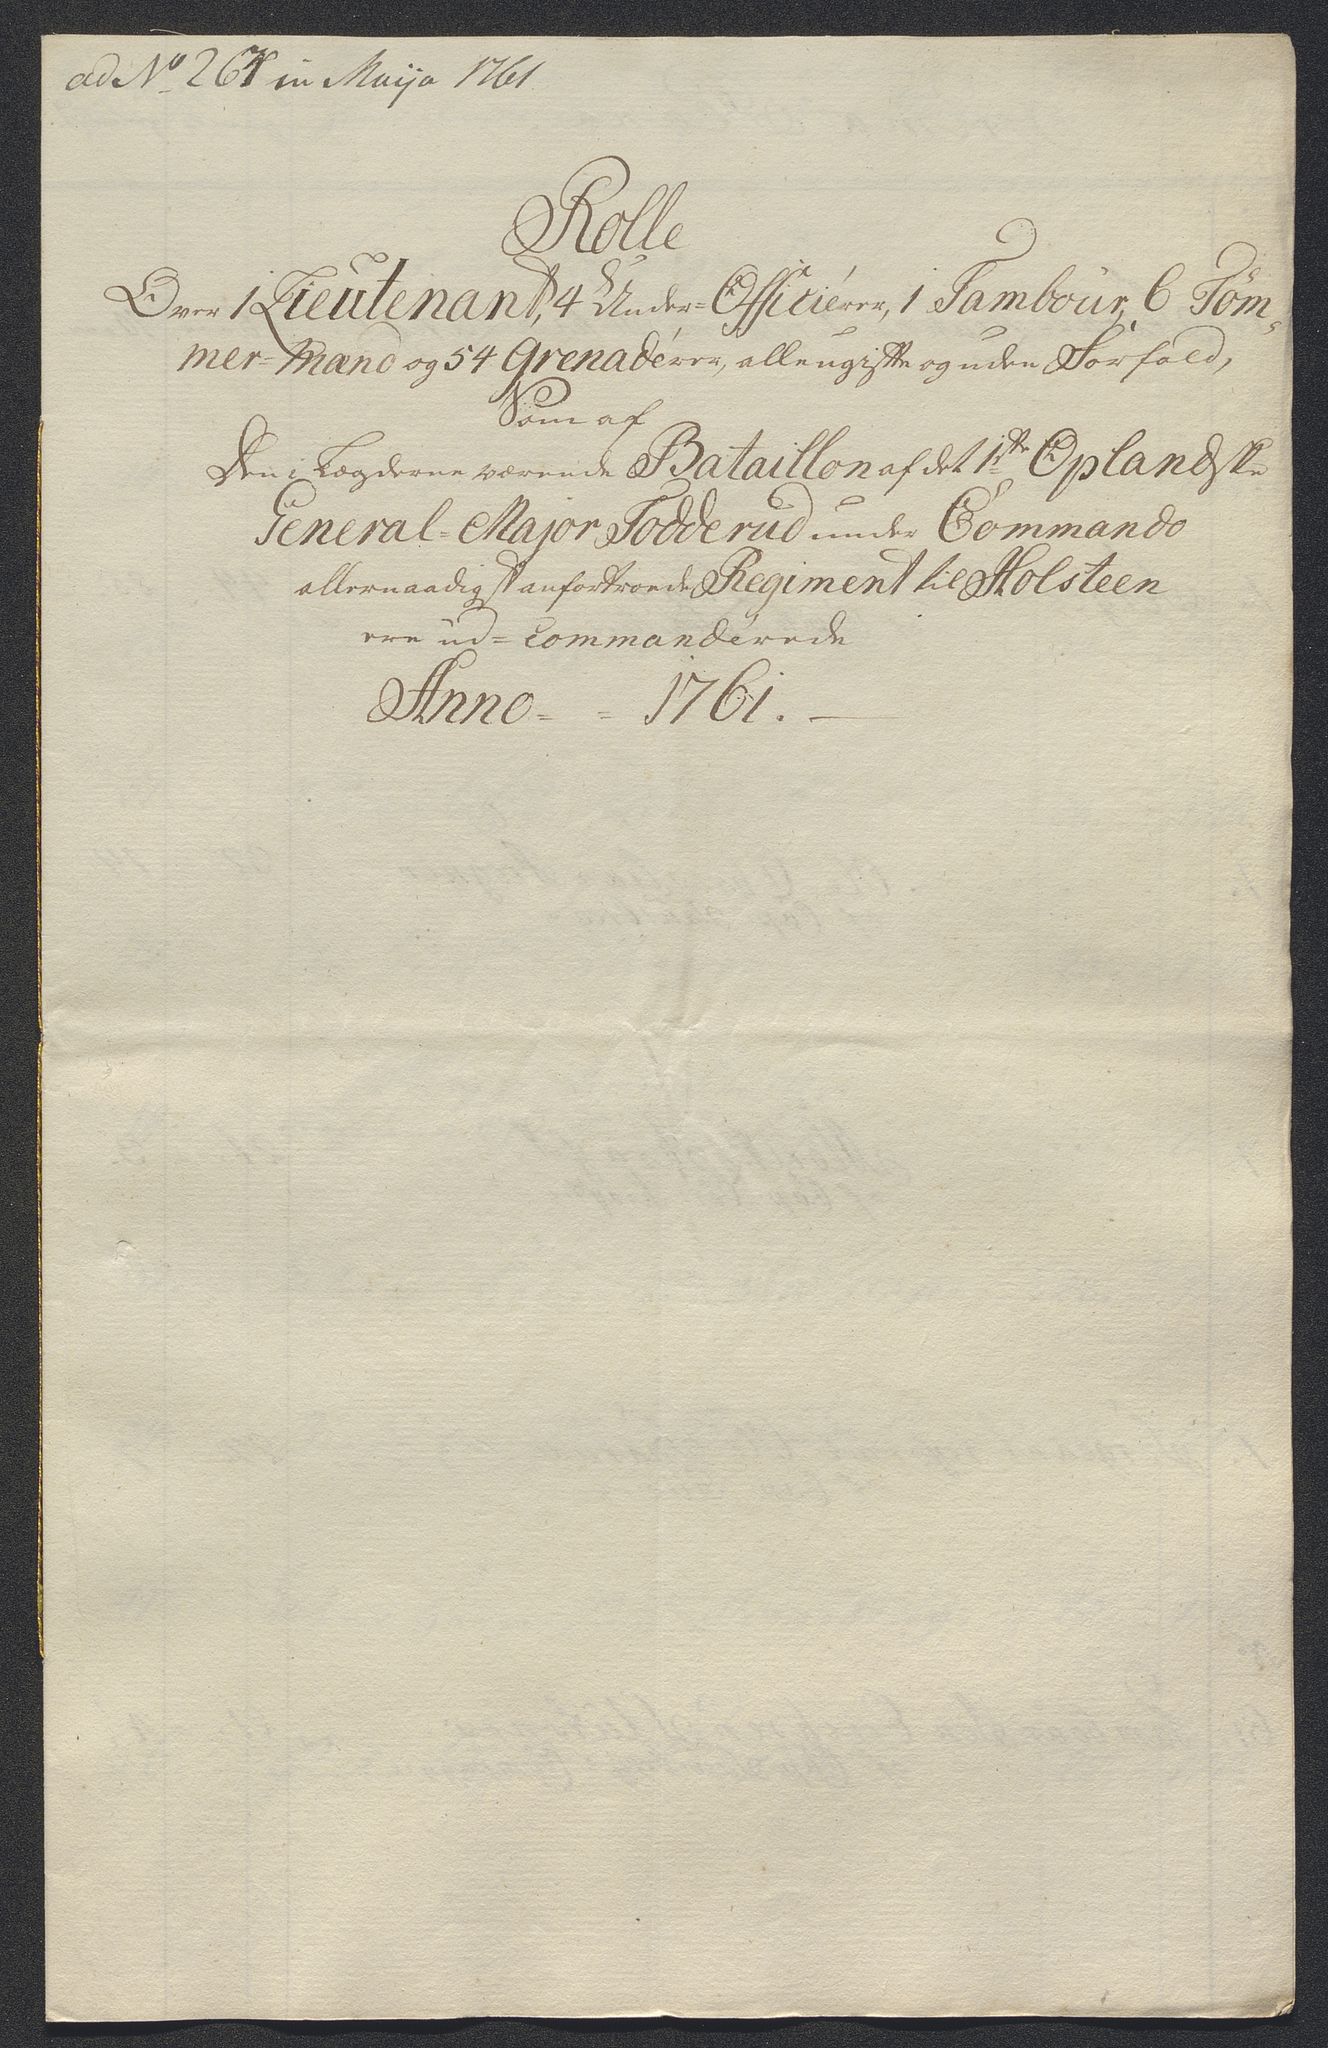 ad No 267 in Maijo 1761
Rolle
Over 1 Lieutenant, 4 Under=Officiérer, 1 Tambour, 6 Töm=
mer=Mænd og 54 Grenadérer, alle ugifte og uden Forfald,
Som af
Den i Lægderne værende Bataillon af det 1ste Oplandske
General=Major Todderud under Commando
allernaadigst anfortroede Regiment til Holsteen
ere ud=commandérede
Anno = = 1761.